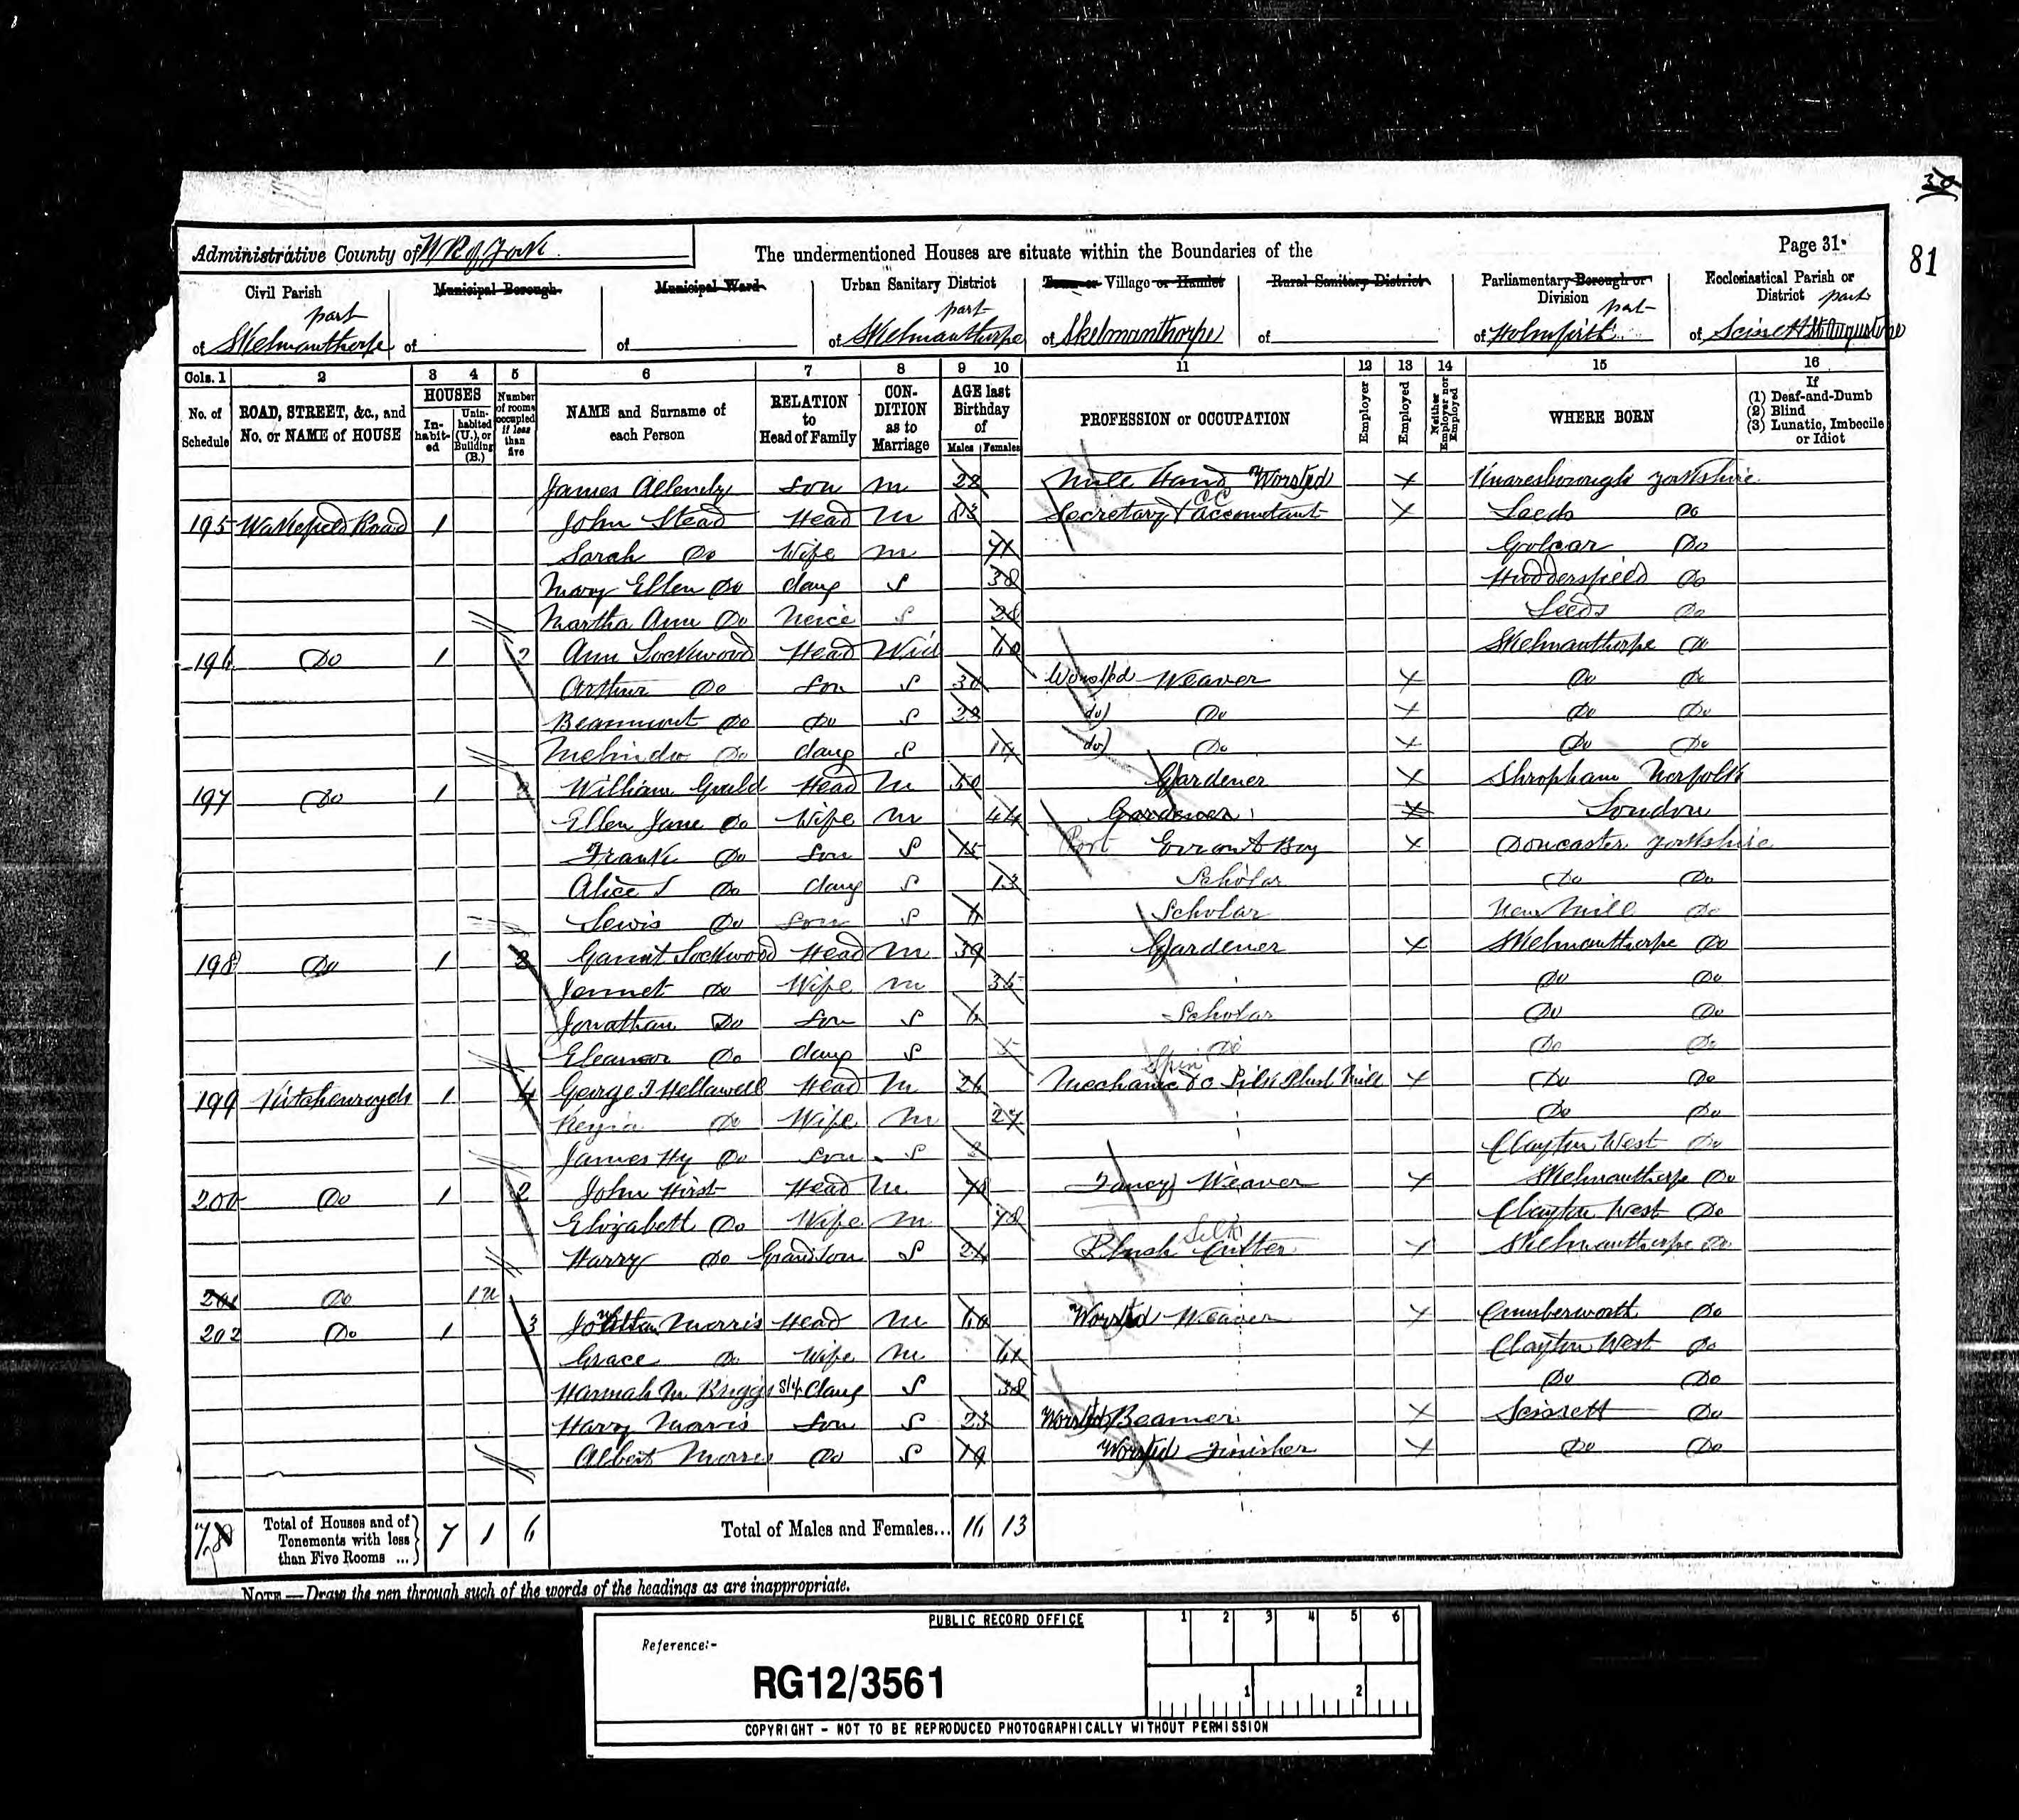 30
81
Administrative County of W R of York The undermentioned Houses are situate within the Boundaries of the Page 31.
Civil Parish Municipal Borough Municipal Ward Urban Sanitary District Town or Village or Hamlet Rural Sanitary District Parliamentary Borough or Division Ecclesiastical Parish or District
part part part part
of Skelmanthorpe of of of Skelmanthorpe of Skelmanthorpe of of Holmfirth of Scissett St Augustine
Cols. 1 2 3 4 5 6 7 8 9 10 11 12 13 14 15 16
No. of Schedule ROAD, STREET, &c., and No. or NAME of HOUSE HOUSES Inhabited Uninhabited (U.), or Building (B.) Number of rooms occupied if less than five NAME and Surname of each Person RELATION to Head of Family CONDITION as to Marriage AGE last Birthday of Males Females PROFESSION or OCCUPATION Employer Employed Neither Employer nor Employed WHERE BORN If (1) Deaf-and-Dumb (2) Blind (3) Lunatic, Imbecile or Idiot
James Allenby Son M 28 Mill Hand Worsted X Knaresborough Yorkshire
195 Wakefield Road 1 John Stead Head M Secretary & accountant CC X Leeds Do
Sarah Do Wife M 71 Golcar Do
Mary Ellen Do daug S 38 Huddersfield Do
Martha Ann Do Neice S 28 Leeds Do
196 Do 1 2 Ann Lockwood Head Wid 60 Skelmanthorpe Do
Arthur Do Son S 30 Worsted Weaver X Do Do
Beaumont Do Do S 22 do Do X Do Do
Melinda Do daug S do Do X Do Do
197 Do 1 William Guild Head M 50 Gardener X Shropham Norfolk
Ellen Jane Do Wife M 44 Gardener X London
Frank Do Son S 15 Port Errant Boy X Doncaster Yorkshire
Alice S Do daug S 13 Scholar Do Do
Lewis Do Son S 6 Scholar New Mill Do
198 Do 1 3 Garnit Lockwood Head M 39 Gardener X Skelmanthorpe Do
Jennet Do Wife M 35 Do Do
Jonathan Do Son S 6 Scholar Do Do
Eleanor Do daug S 5 Do Do Do
199 Kitchenroyds 1 4 George T Hellawell Head M 26 Mechanic &c Silk Plush Mill Spin X Do Do
Kezia Do Wife M 27 Do Do
James Hy Do Son S Clayton West Do
200 Do 1 2 John Hirst Head M Fancy Weaver X Skelmanthorpe Do
Elizabeth Do Wife M 78 Clayton West Do
Harry Do Grandson S 21 Plush Silk Cutter X Skelmanthorpe Do
201 Do 1 u
202 Do 1 3 Morris Head M 60 Worsted Weaver X Cumberworth Do
Grace Do Wife M 61 Clayton West Do
Hannah M Briggs Step daug S 38 Do Do
Harry Morris Son S 23 Worsted Beamer X Scissett Do
Albert Morris Do S 19 Worsted Finisher X Do Do
7.8 Total of Houses and of Tenements with less than Five Rooms ... 7 1 6 Total of Males and Females... 16 13
NOTE.—Draw the pen through such of the words of the headings as are inappropriate.
PUBLIC RECORD OFFICE
Reference:-
RG12/3561
1 2 3 4 5 6
1 2
COPYRIGHT - NOT TO BE REPRODUCED PHOTOGRAPHICALLY WITHOUT PERMISSION